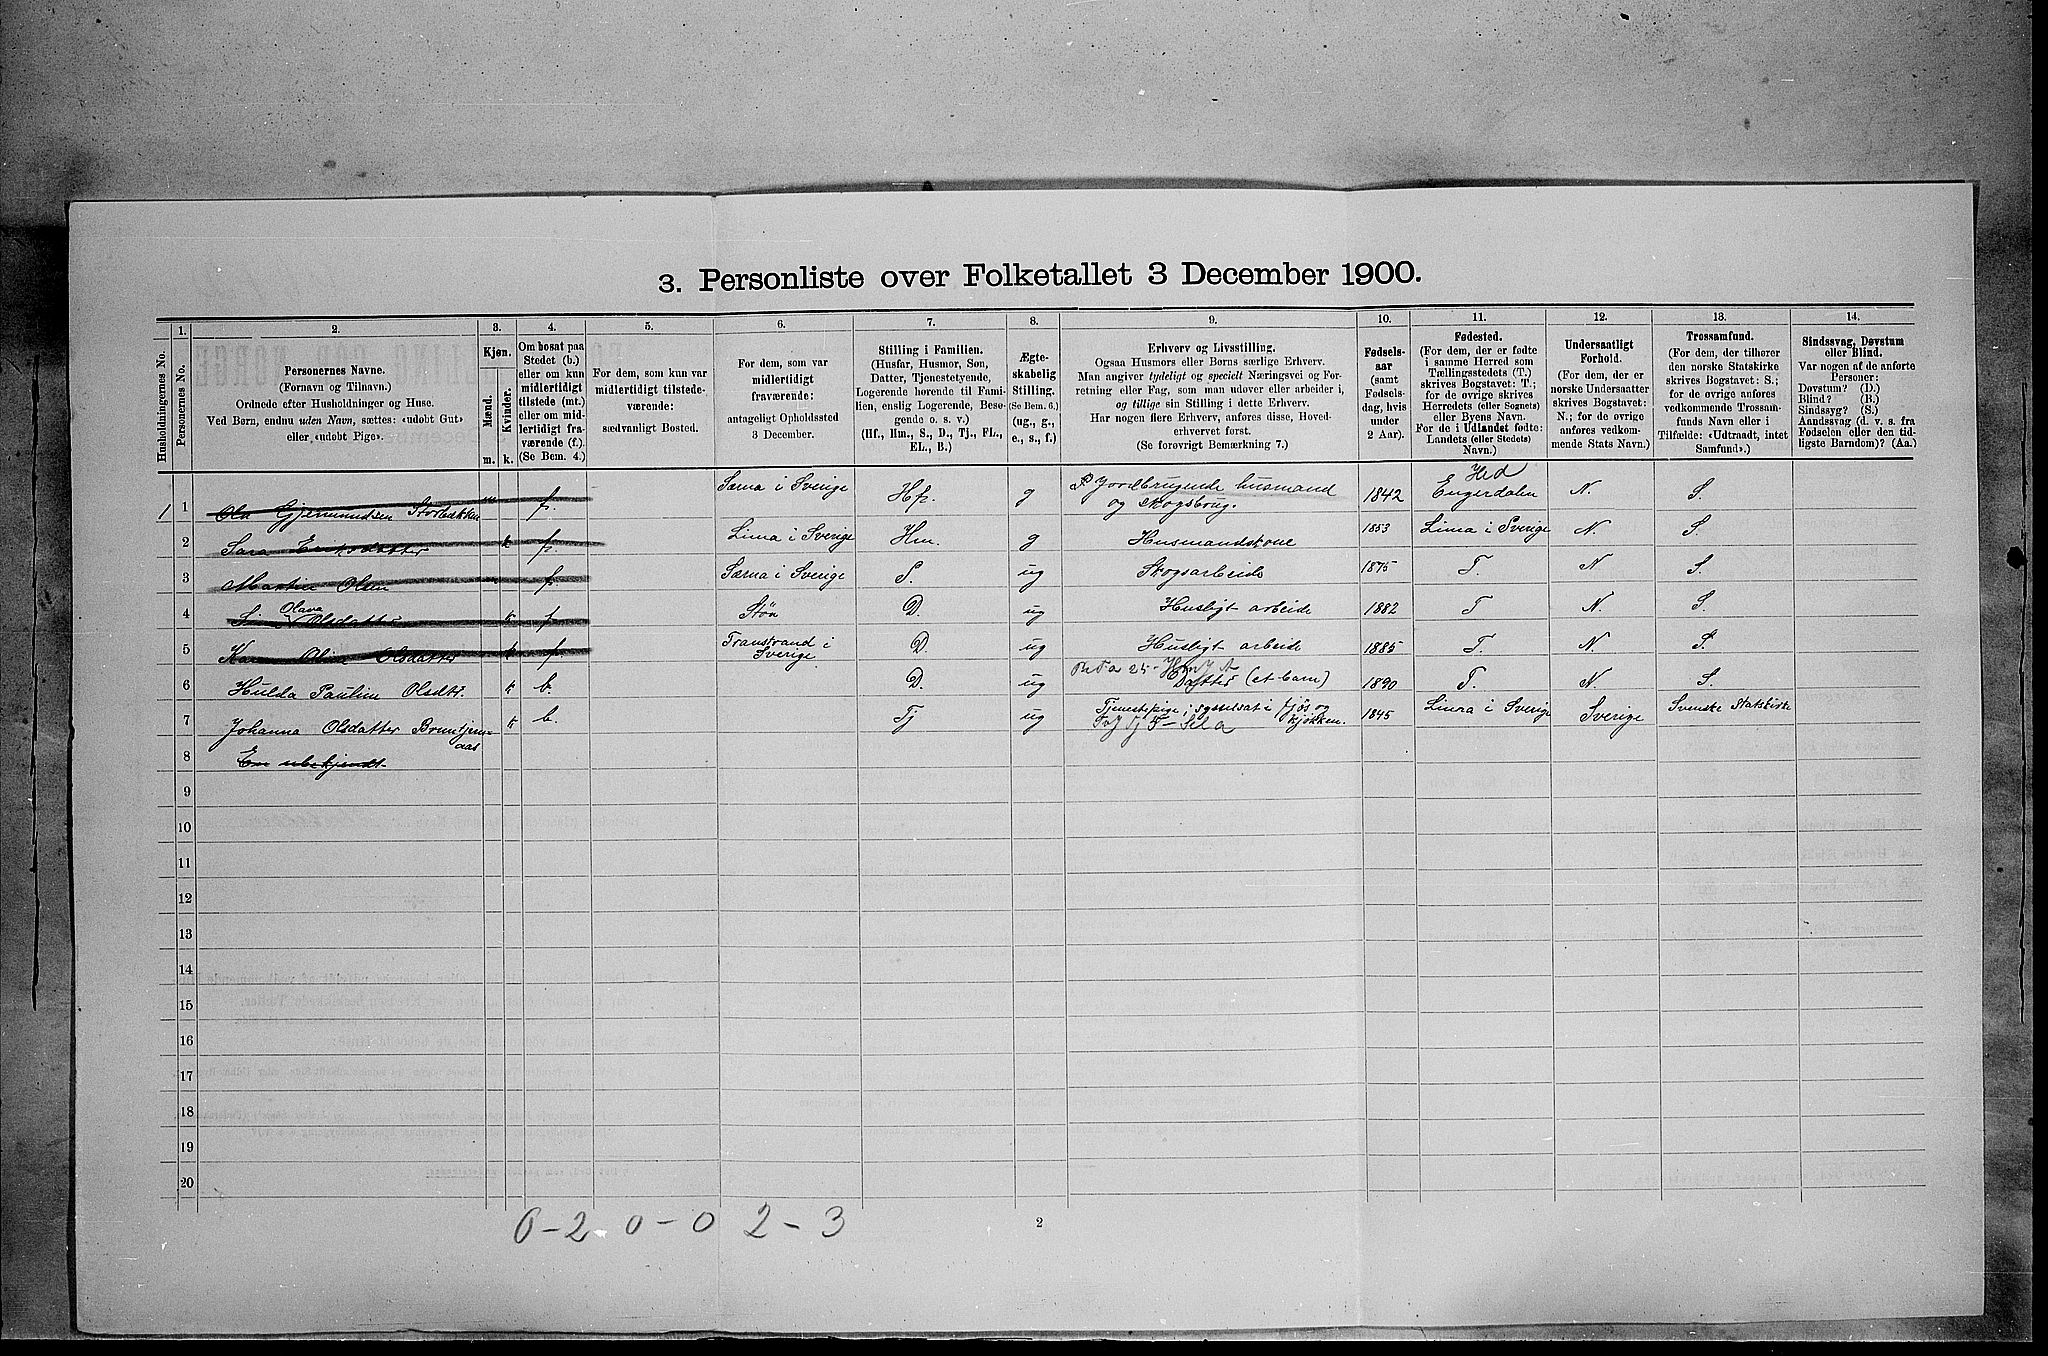 3. Personliste over Folketallet 3 December 1900.
Husholdningernes No.
1.
Personernes No.
2.
Personernes Navne.
(Fornavn og Tilnavn.)
Ordnede efter Husholdninger og Huse.
Ved Børn, endnu uden Navn, sættes: «udøbt Gut»
eller «udøbt Pige».
3.
Kjøn.
Mænd.
Kvinder.
m. k.
4.
Om bosat paa
Stedet (b.)
eller om kun
midlertidigt
tilstede (mt.)
eller om mid-
lertidigt fra-
værende (f.)
(Se Bem. 4.)
5.
For dem, som kun var
midlertidigt tilstede-
værende:
sædvanligt Bosted.
6.
For dem, som var
midlertidigt
fraværende:
antageligt Opholdssted
3 December.
7.
Stilling i Familien.
(Husfar, Husmor, Søn,
Datter, Tjenestetyende,
Logerende hørende til Fami-
lien, enslig Logerende, Besø-
gende o. s. v.)
(Hf., Hm., S., D., Tj., FL.,
EL., B.)
8.
Ægte-
skabelig
Stilling.
(Se Bem. 6.)
(ug., g.,
e., s., f.)
9.
Erhverv og Livsstilling.
Ogsaa Husmors eller Børns særlige Erhverv.
Man angiver tydeligt og specielt Næringsvei og For-
retning eller Fag, som man udøver eller arbeider i,
og tillige sin Stilling i dette Erhverv.
Har nogen flere Erhverv, anføres disse, Hoved-
erhvervet først.
(Se forøvrigt Bemærkning 7.)
10.
Fødsels-
aar
(samt
Fødsels-
dag, hvis
under
2 Aar).
11.
Fødested.
(For dem, der er fødte
i samme Herred som
Tællingsstedets (T.)
skrives Bogstavet: T.;
for de øvrige skrives
Herredets (eller Sognets)
eller Byens Navn.
For de i Udlandet fødte:
Landets (eller Stedets)
Navn.)
12.
Undersaatligt
Forhold.
(For dem, der er
norske Undersaatter
skrives Bogstavet:
N.; for de øvrige
anføres vedkom-
mende Stats Navn.)
13.
Trossamfund.
(For dem, der tilhører
den norske Statskirke
skrives Bogstavet: S.;
for de øvrige anføres
vedkommende Trossam-
funds Navn eller i
Tilfælde: «Udtraadt, intet
Samfund».)
14.
Sindssvag, Døvstum
eller Blind.
Var nogen af de anførte
Personer:
Døvstum? (D.)
Blind? (B.)
Sindssyg? (S.)
Aandssvag (d. v. s. fra
Fødselen eller den tid-
ligste Barndom)? (Aa.)
1 1 Ola Gjermundsen Storbækken m f. Særna i Sverige Hf. g P Jordbrugende husmand og Skogsbrug. 1842 Hed Engerdalen N. S.
2 Sara Eriksdatter k f. Lima i Sverige Hm. g Husmandskone 1853 Lima i Sverige N. S.
3 Martin Olsen m f. Særna i Sverige S. ug Skogsarbeide 1875 T. N S.
4 Olava Olsdatter k f Støa D. ug Husligt arbeide 1882 T N. S.
5 Olsdatter k f Transtrand i Sverige D. ug Husligt arbeide 1885 T. N. S.
6 Hulda Pauline Olsdt. k b. D. ug Datter (et barn) 1890 T. N. S.
7 Johanna Olsdatter k b. Tj ug Tjenestepige, sysselsat i fjøs og kjøkken. 1845 Lima i Sverige Sverige Svenske Statskirke
8 En ubekjendt
9
10
11
12
13
14
15
16
17
18
19
20
0-2 0-0 2-3
2